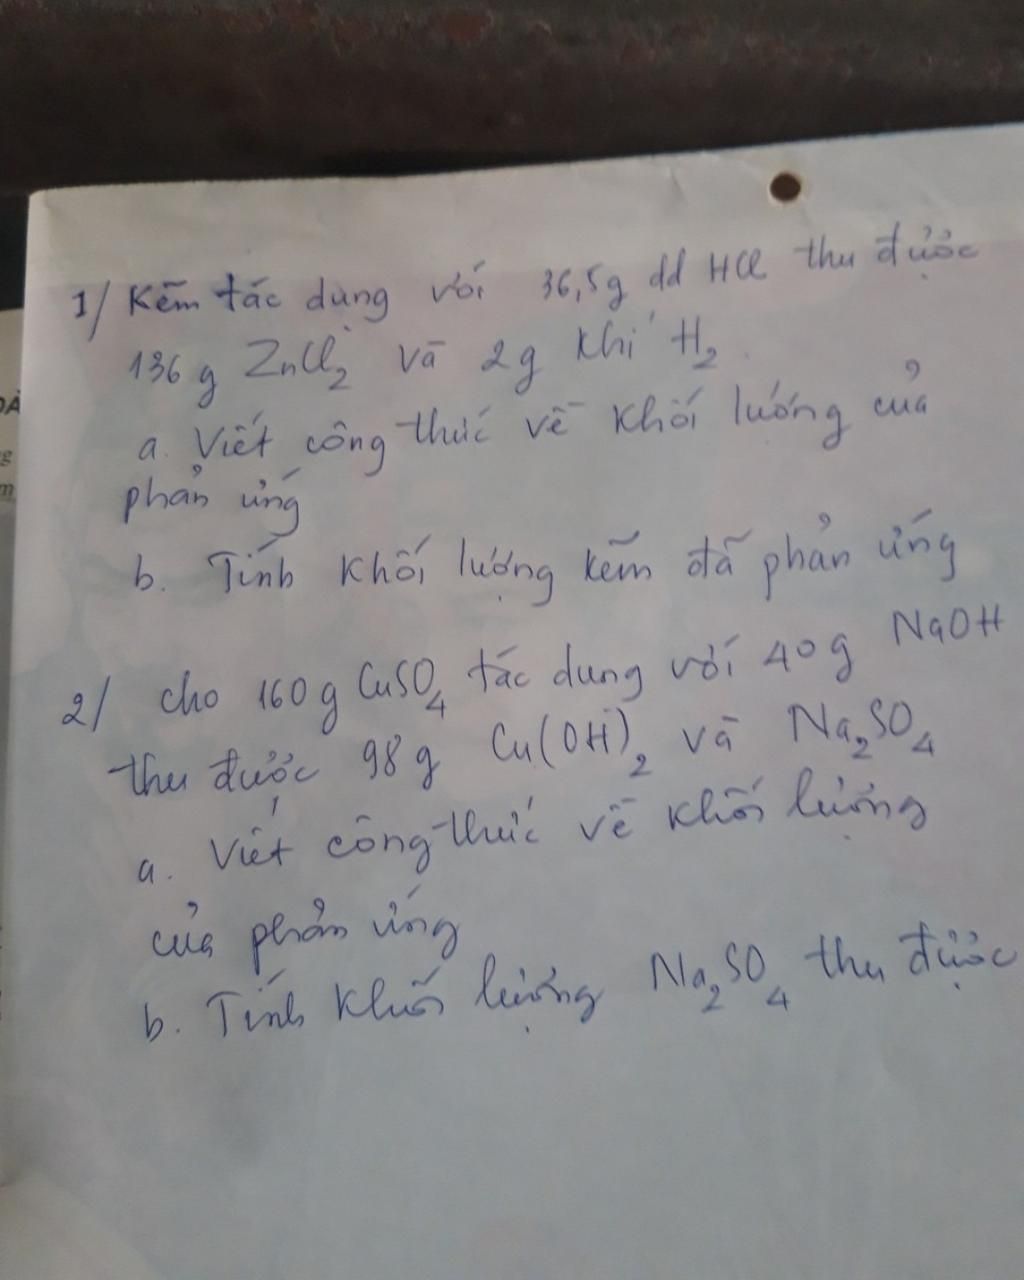 1/ Kẽm tác dụng với 36,5g dd HCl thu được
136 g ZnCl₂ và 2g khí H₂.
a. Viết công thức về khối lượng của
phản ứng
b. Tính khối lượng kẽm đã phản ứng
2/ cho 160g CuSO₄ tác dung với 40g NaOH
thu được 98 g Cu(OH)₂ và Na₂SO₄
a. Viết công thức về khối lượng
của phản ứng
b. Tính khối lượng Na₂SO₄ thu được